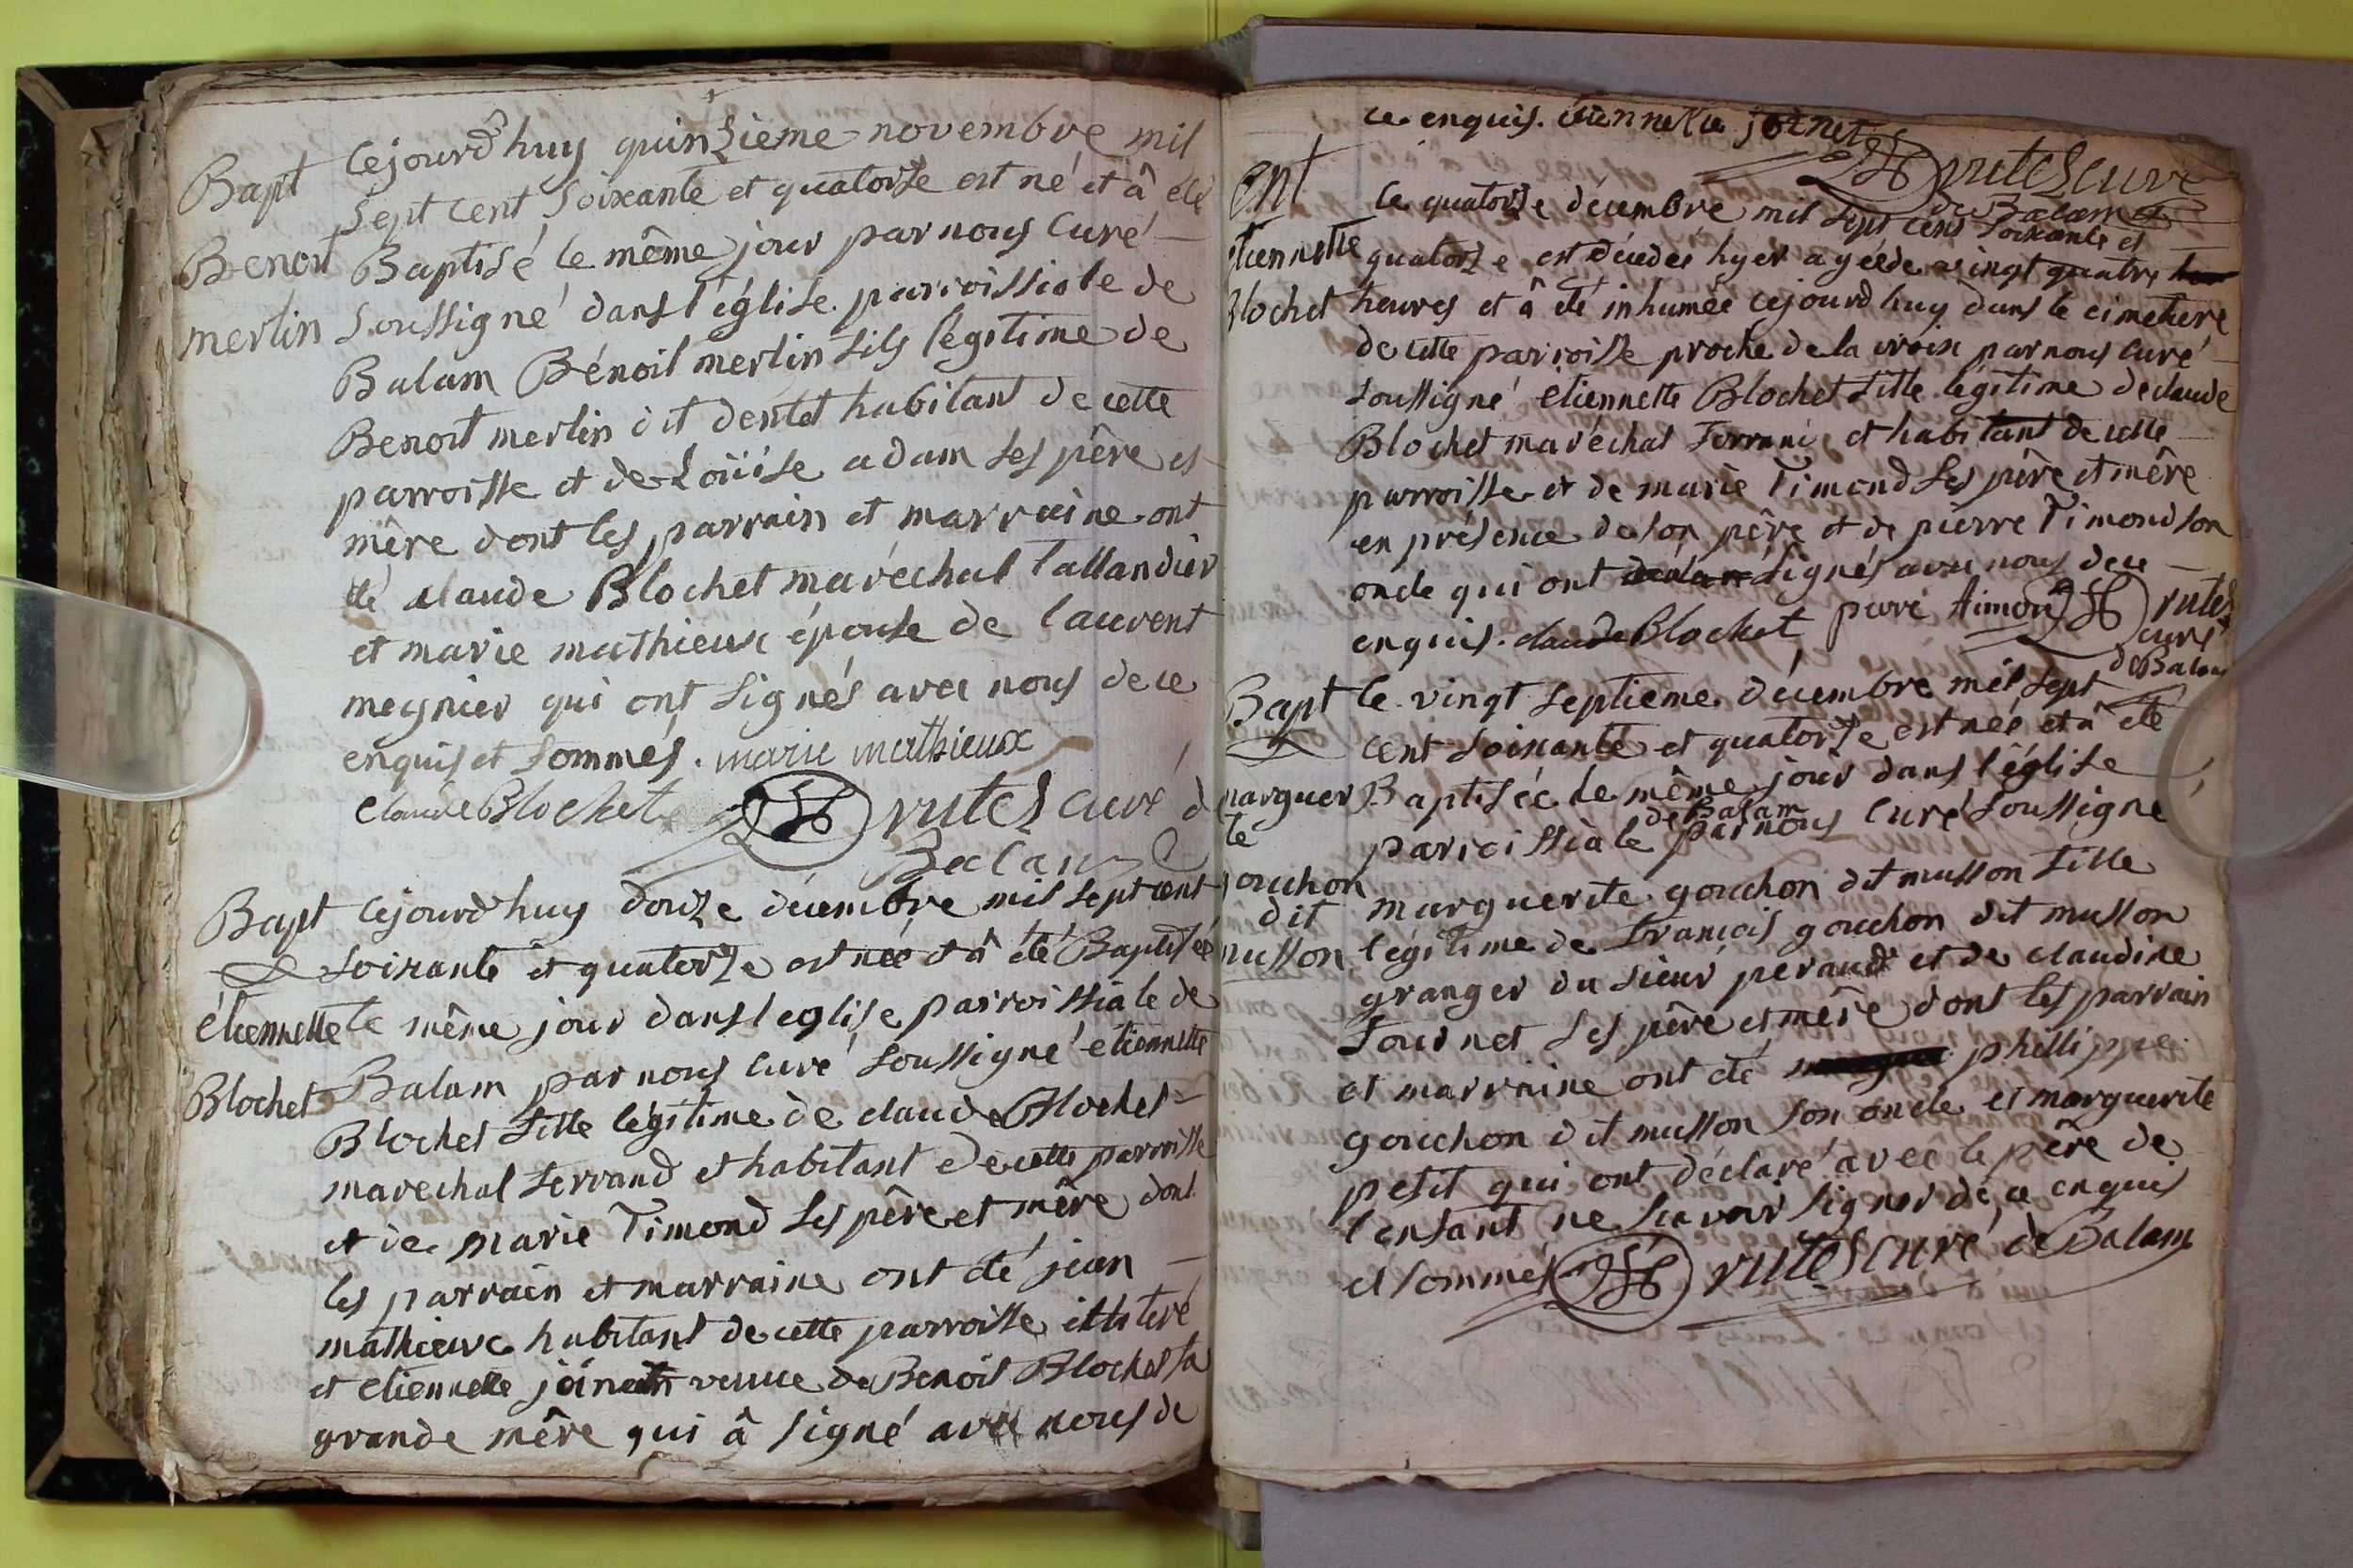 Bapt
Benoit
merlin
Cejourd'huy quinzieme novembre mil
sept cent soixante et quatorze est né et â été
Baptisé le même jour par nous Curé
soussigné dans l'église parroissiale de
Balam Bénoit merlin fils légitime de
Benoit merlin dit dentet habitant de cette
parroisse et de Loüise adam ses père et
mêre dont les parrain et marraine ont
été claude Blochet maréchal tallandier
et marie mathieux épouse de laurent
megnier qui ont signés avec nous de ce
enquis et sommés. marie mathieux
claude Blochet rutes curé d
Balam
Bapt
étiennette
Blochet
Cejourd'huy douze décembre mil sept cent
soixante et quatorze est née et â été Baptisée
le même jour dans l'eglise parroissiale de
Balam par nous curé soussigné etiennette
Blochet fille légitime de claude Blochet
marechal ferrand et habitant de cette parroisse
et de marie Timond ses pêre et mêre dont
les parrain et marraine ont été jean
mathieux habitant de cette parroisse illiteré
et etiennette veuve de Benoit Blochet sa
grande mêre qui â signé avec nous de
ce enquis. étiennette joinet
rutes curé
de Balam
ent
etiennette
Blochet
le quatorze décembre mil sept cent soixante et
quatorze est décédée hyer agéé de vingt quatre
heures et â été inhumée cejourd'huy dans le cimetiere
de cette parroisse proche de la croix par nous curé
soussigné étiennette Blochet fille légitime de claude
Blochet maréchal ferrand et habitant de cette
parroisse et de marie Timond ses pêre et mêre
en présence de son pêre et de pierre Timond son
oncle qui ont signés avec nous de ce
enquis. claude Blochet rutes
curé
de Balam
Bapt
marguer
te
gouchon
dit
musson
le vingt septieme décembre mil sept
cent soixante et quatorze est née et â été
Baptiséé le même jour dans l'église
parroissiale de Balam par nous curé soussigné
marguerite gouchon dit musson fille
légitime de françois gouchon dit musson
granger du sieur peraud et de claudine
fournet ses pêre et mêre dont les parrain
et marraine ont été phillippe
gouchon dit musson son oncle et marguerite
petit qui ont déclaré avec le pêre de
l'enfant ne sçavoir signer de ce enquis
et sommés rutes curé de Balam